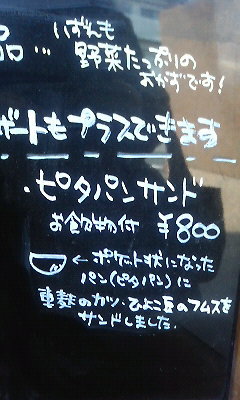 品… いずれも
野菜たっぷりの
おかずです!
ポートもプラスできます
・ピタパンサンド
お飲物付 ¥800
←ポケット状になった
パン(ピタパン)に
車麩のカツ・ひよこ豆のフムスを
サンドしました。